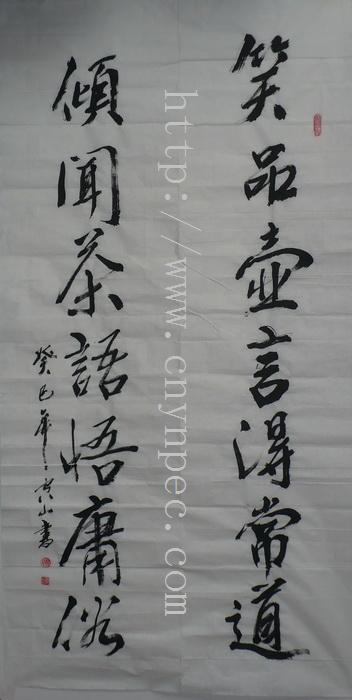 笑品壶言得常道
傾闻茶語悟庸俗
癸巳年黄山書
http://www.cnynpec.com